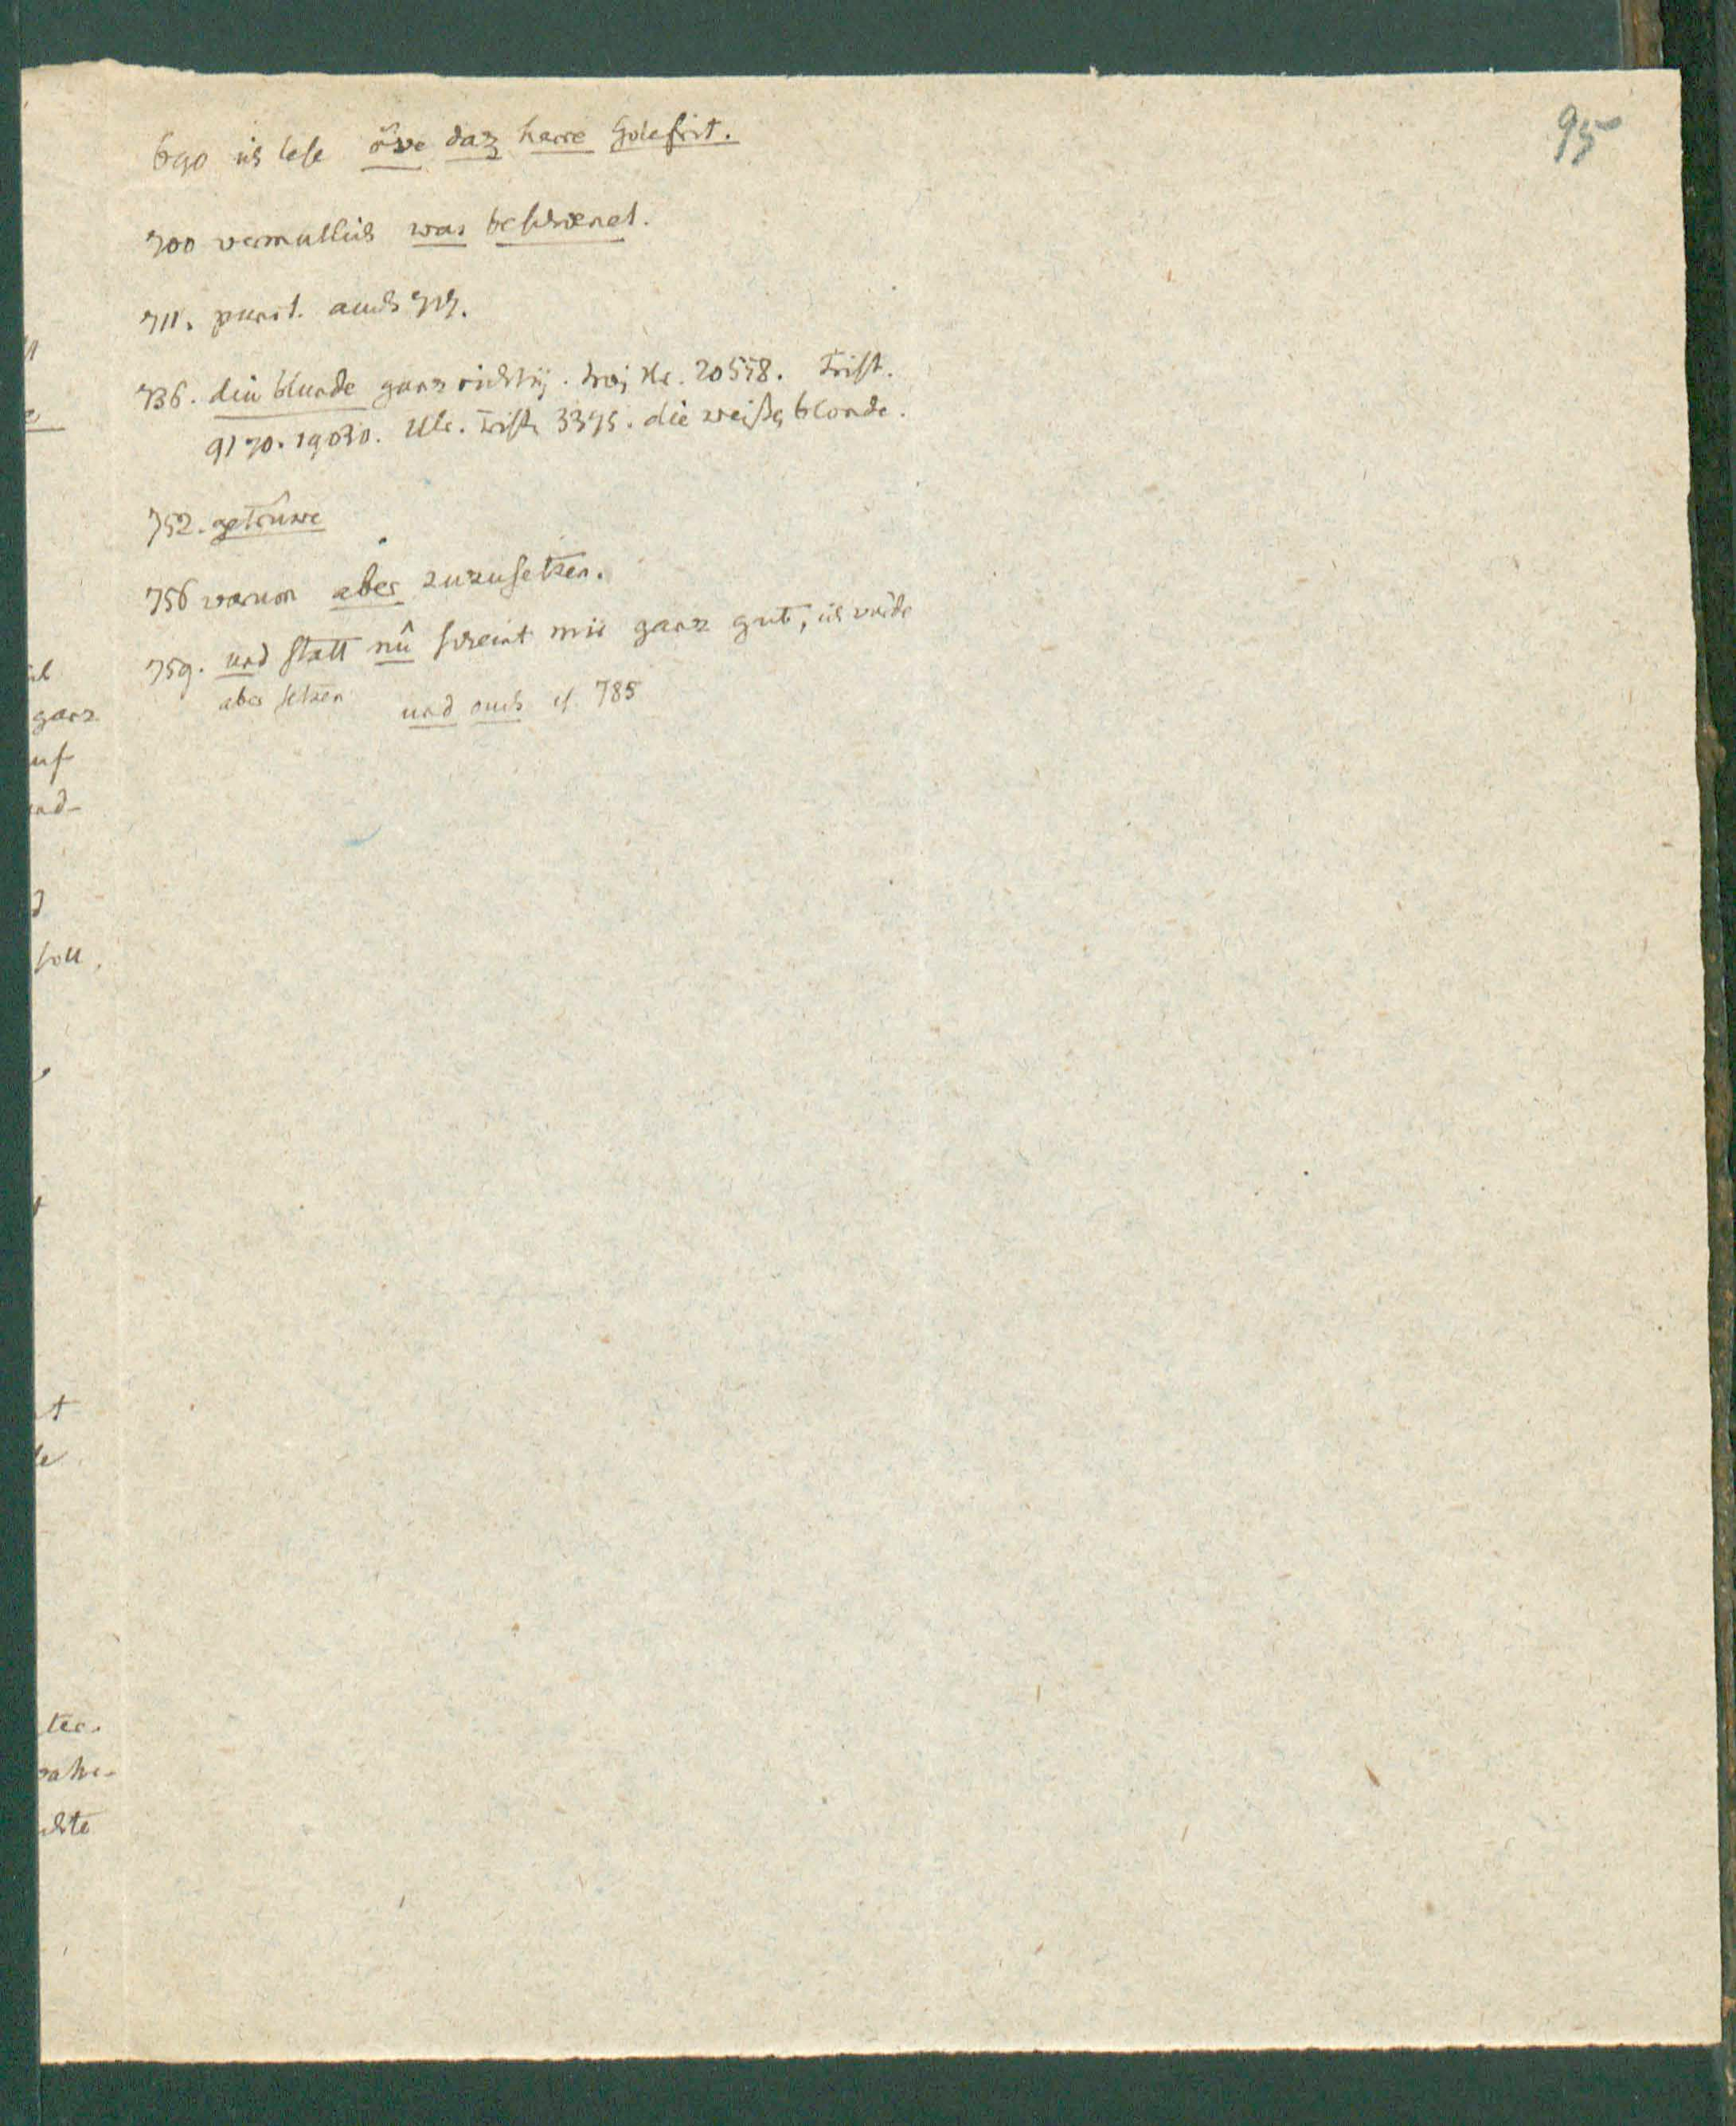 95
690 ich lese ôwe daz herre Gotefrit.
700 vermuthlich was beschoenet.
711. punct. auch 717.
736. diu blunde ganz richtig. troj Kr. 20558. Trist.
9170. 19030. Ulr. Trist. 3395. die weiße, blonde.
752. getrûwe
756 warum aber zuzusetzen.
759. und statt nû scheint mir ganz gut, ich würde
aber setzen und ouch cf. 785
ganz
uf
nd-
soll,
t
ter.
chte